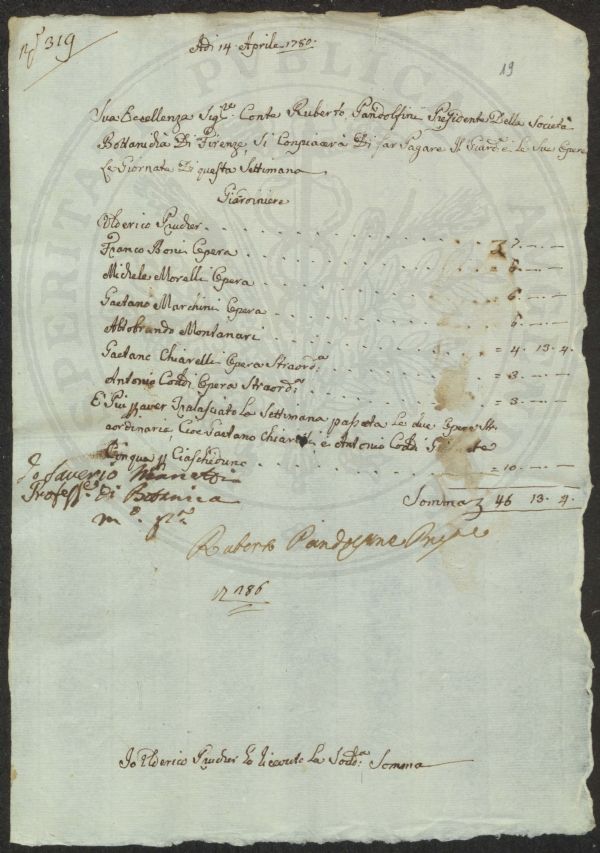 N.º 319
Adi 14 Aprile 1780.
19
Sua Eccellenza Sigre: Conte Ruberto Pandolfini Presidente Della Società
Bottanicha Di Firenze, Si Conpiacerà Di far Pagare Il Giard.e e le Sue Opere
Le Giornate Di questa Settimana
Giardiniere
Ulderico Prucher 7 — —
Franco Boni Opera = 6 — —
Michele Morelli Opera 6 — —
Gaetano Marchini Opera 6 — —
Aldobrando Montanari
Gaetano Chiarelli Opera Straordra = 4. 13. 4.
Antonio Conti Opera Straordra = 3. — —
= 3. — —
E Più p aver Tralasciato La Settimana passata le due Opere Str
aordinarie, Cioe Gaetano Chiarelli e Antonio Conti Giornate
Cinque p Ciascheduno = 10. — —
Io Saverio Manetti
Profess.e Di Botanica
m.o p.a
Somma 46 13. 4.
Ruberto Pandolfini Presde
N 286
Io Ulderico Prucher ho riceuto La Sodda Somma